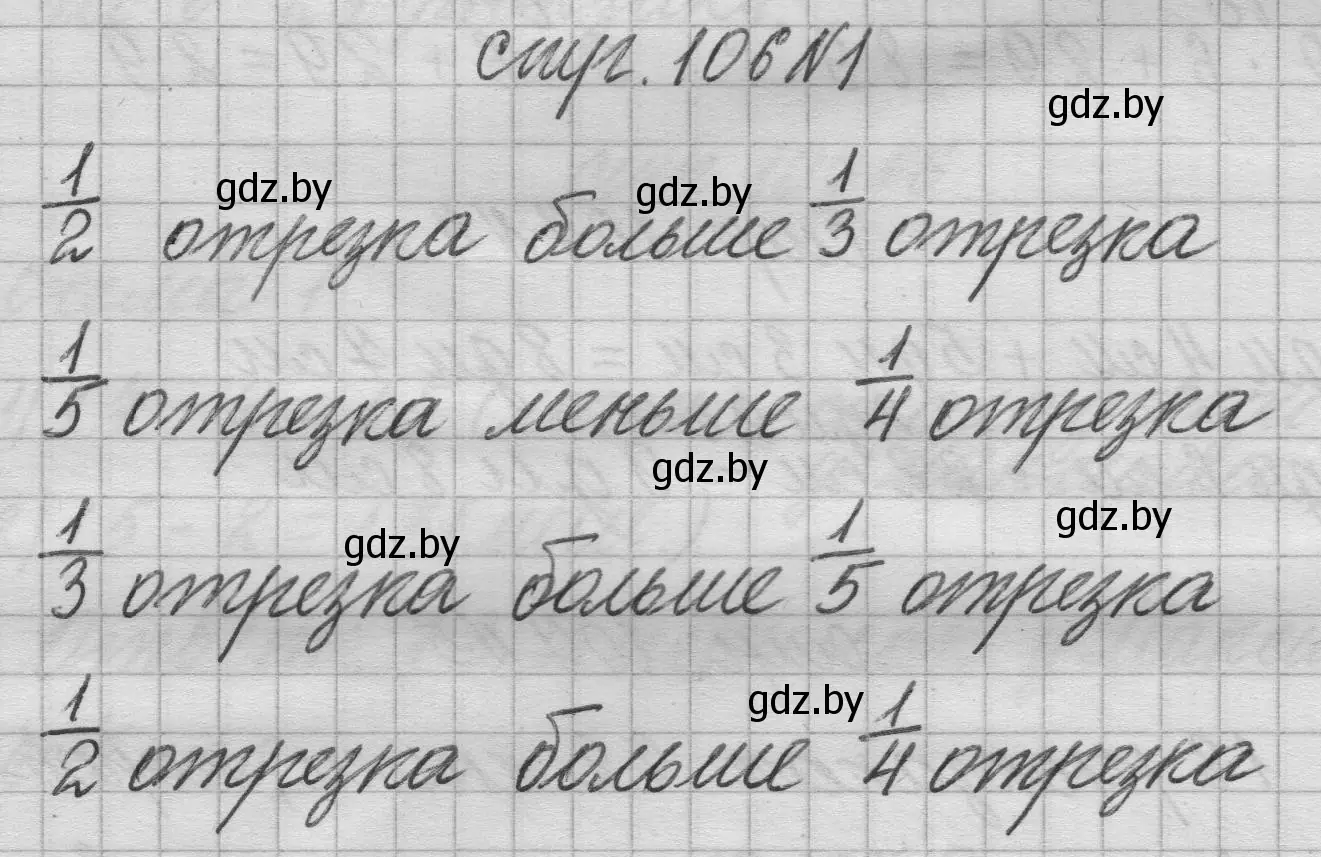 стр. 106 №1
gdz.by
gdz.by gdz.by
1/2 отрезка больше 1/3 отрезка
1/5 отрезка меньше 1/4 отрезка
gdz.by
gdz.by gdz.by
1/3 отрезка больше 1/5 отрезка
gdz.by
1/2 отрезка больше 1/4 отрезка